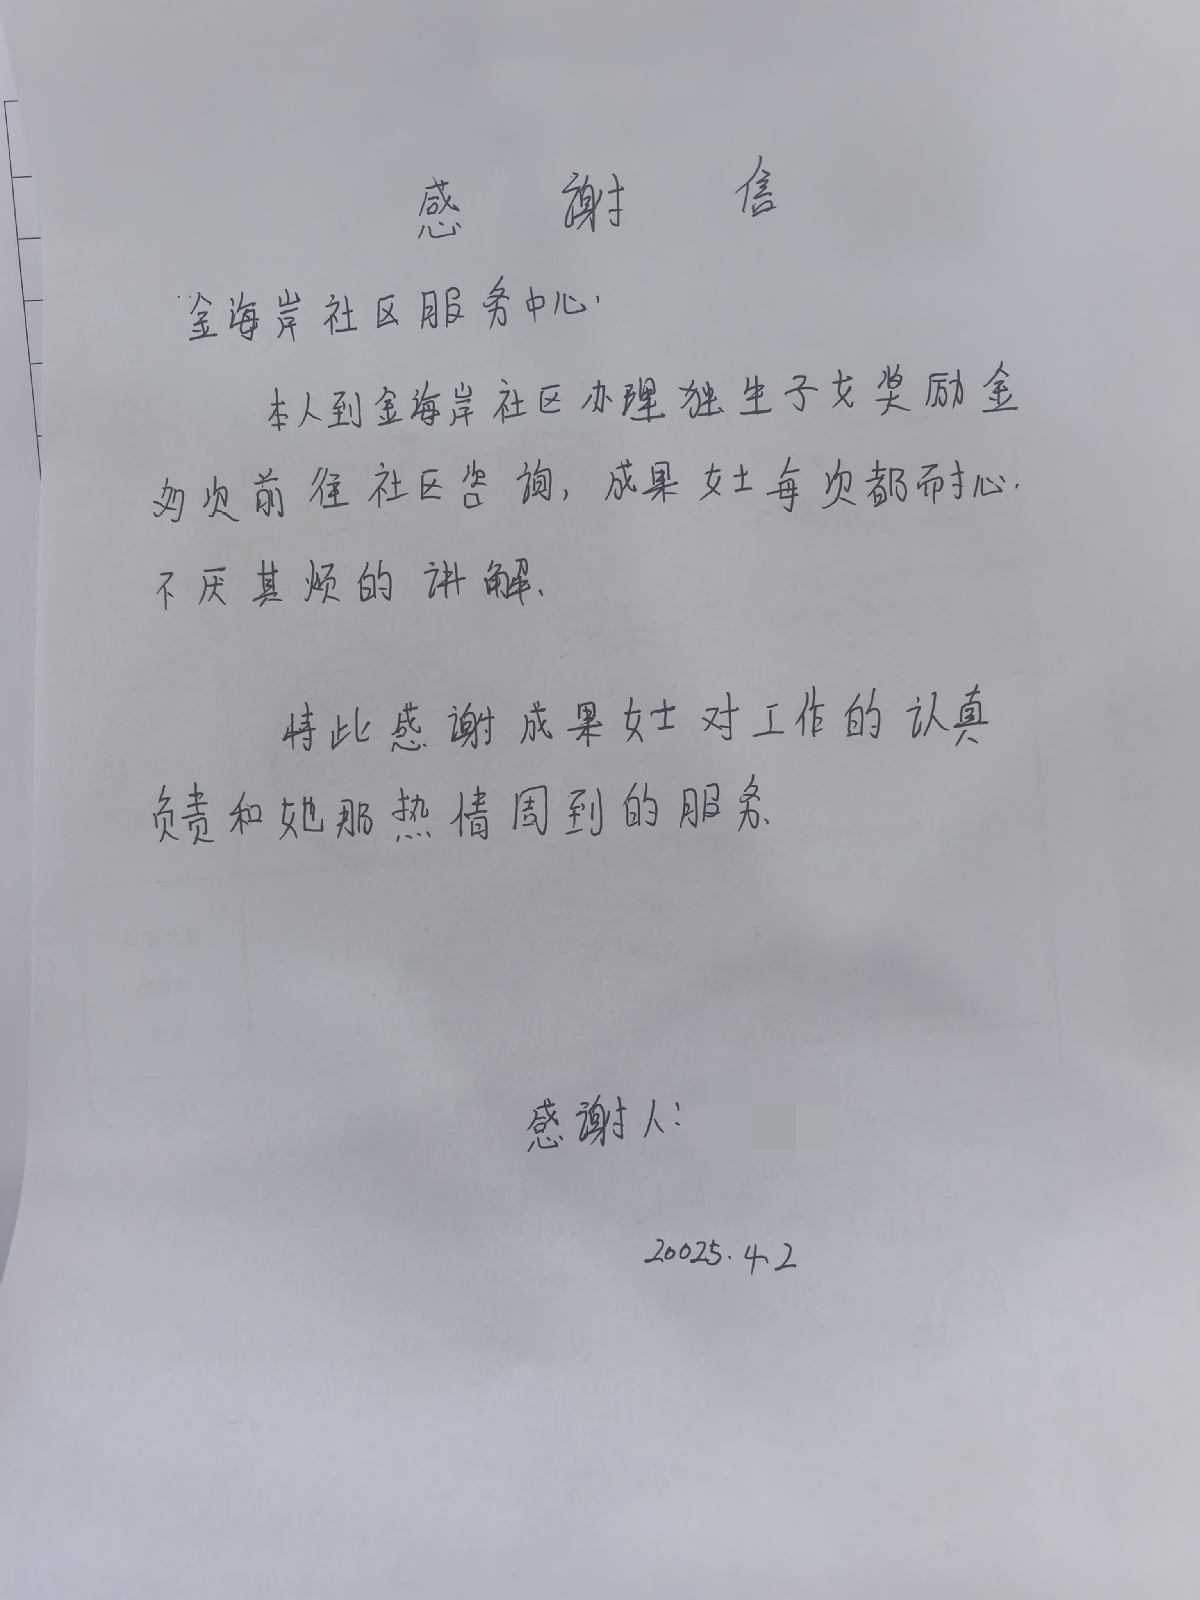 感谢信
金海岸社区服务中心.
本人到金海岸社区办理独生子女奖励金
多次前往社区咨询,成果女士每次都耐心.
不厌其烦的讲解.
特此感谢成果女士对工作的认真
负责和她那热情周到的服务.
感谢人:
20025.4.2